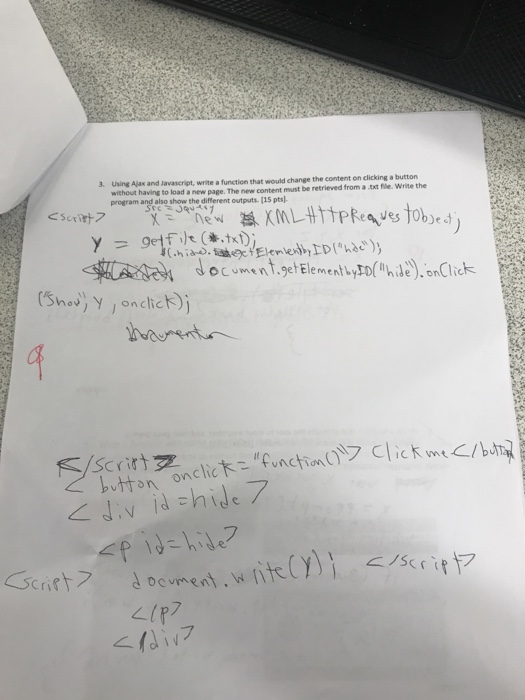 3. Using Ajax and Javascript, write a function that would change the content on clicking a button
without having to load a new page. The new content must be retrieved from a .txt file. Write the
program and also show the different outputs. [15 pts].
src = jquery
<script> X = new XMLHttpRequestObject;
Y = getFile(*.txt);
$(.hide). getElementbyID("hide");
document.getElementbyID("hide").onClick
("Show", Y, onclick);
Documenten
</script>
< button onclick="function()"> Click me </button>
< div id=hide >
<p id=hide>
<script> document.write(Y); </script>
</p>
</div>